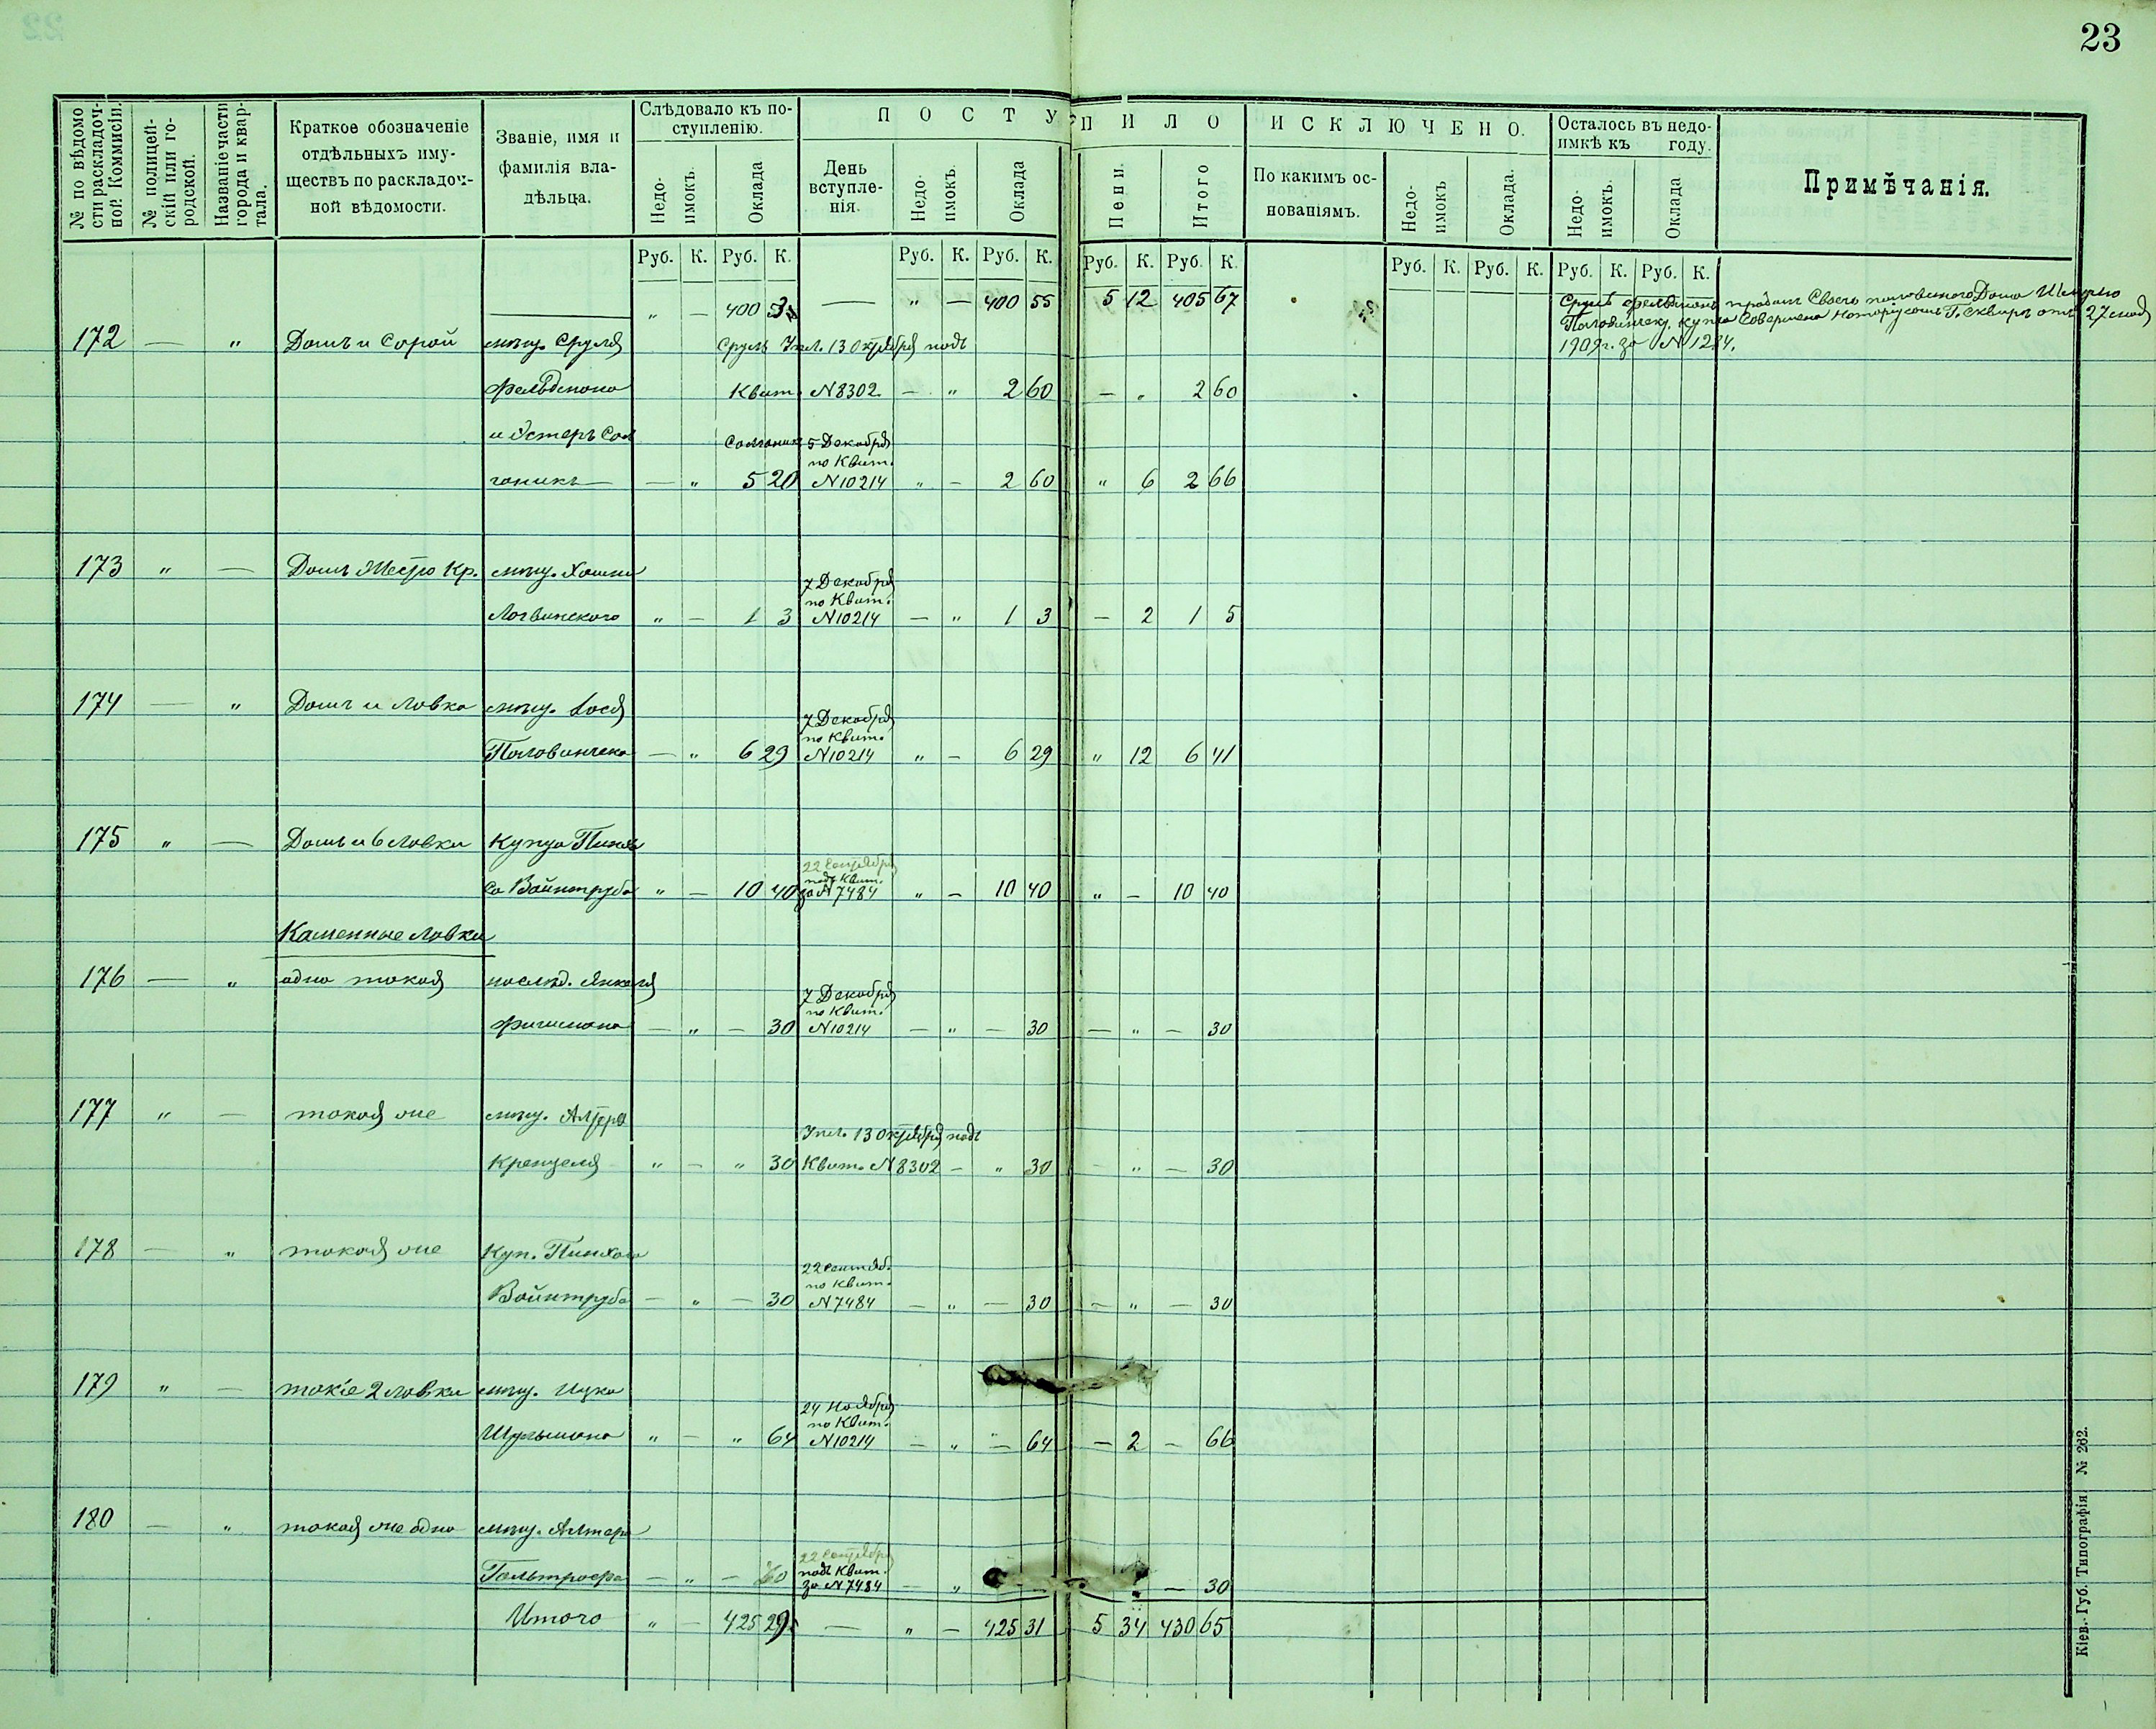 23
№ по вѣдомости раскладочной Коммисіи.
№ полицейскій или городской.
Названіе части города и квартала.
Краткое обозначеніе отдѣльныхъ имуществъ по раскладочной вѣдомости.
Званіе, имя и фамилія владѣльца.
Слѣдовало къ поступленію.
Недоимокъ. Оклада
ПОСТУПИЛО
День вступленія. Недоимокъ. Оклада Пени. Итого
ИСКЛЮЧЕНО.
По какимъ основаніямъ. Недоимокъ Оклада.
Осталось въ недоимкѣ къ году.
Недоимокъ. Оклада
Примѣчанія.
Руб. К. Руб. К. Руб. К. Руб. К. Руб. К. Руб. К. Руб. К. Руб. К. Руб. К. Руб. К.
„ — 400 — „ — 400 55 5 12 405 67
172 — „ Домъ и Сарай мѣщ. Сруля Сруль Упл. 13 Октября подъ
Фельдмана Квит. N 8302 — „ 2 60 — „ 2 60
и Эстеръ Сал
ганикъ — „ 5 20 5 Декабря по Квит. N 10214 „ — 2 60 „ 6 2 66
1909 г. за N 1284.
173 „ — Домъ Жестю Кр. мѣщ.
Логвинского „ — 1 3 7 Декабря по Квит. N 10214 — „ 1 3 — 2 1 5
174 — „ Домъ и Лавка мѣщ. Іося
Половинчека — „ 6 29 7 Декабря по Квит. N 10214 „ — 6 29 „ 12 6 41
175 „ — Домъ и 6 Лавки Купца Пинха
са Вайнтруба „ — 10 40 22 Сентября подъ Квит. за N 7484 „ — 10 40 „ — 10 40
Каменные Лавки
176 — „ одна такая наслѣд. Янкеля
Фишмана — „ — 30 7 Декабря по Квит. N 10214 — „ — 30 — „ — 30
177 „ — такая же мѣщ. Алтера
Кренцеля „ — „ 30 Упл. 13 Октября подъ Квит. N 8302 — „ 30 — „ — 30
178 — „ такая же Куп. Пинхаса
Вайнтруба — „ — 30 22 Сентяб. по Квит. N 7484 — „ — 30 — „ — 30
179 „ — такіе 2 лавки мѣщ. Ицка
Шульмана „ — „ 64 24 Ноября по Квит. N 10214 — „ — 64 — 2 — 66
180 — „ такая же одна мѣщ. Алтера
— „ — 22 Сентября подъ Квит. за N 7484 — „ — 30
Итого „ — 425 29 — „ — 425 31 5 34 430 65
Кіев. Губ. Типографія № 262.